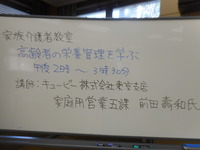 家族介護者教室
高齢者の栄養管理を学ぶ
午後2時～3時30分
講師：キューピー株式会社東京支店
家庭用営業五課 前田壽和氏